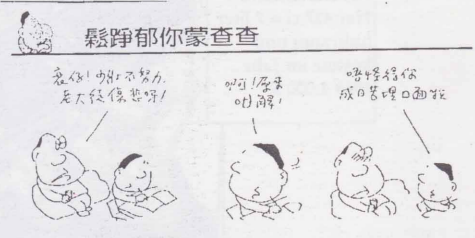 鬆踭郁你蒙查查
衰仔!少壯不努力,
老大徒傷悲呀!
啊!原來
咁解!
唔怪得你
成日苦埋口面啦